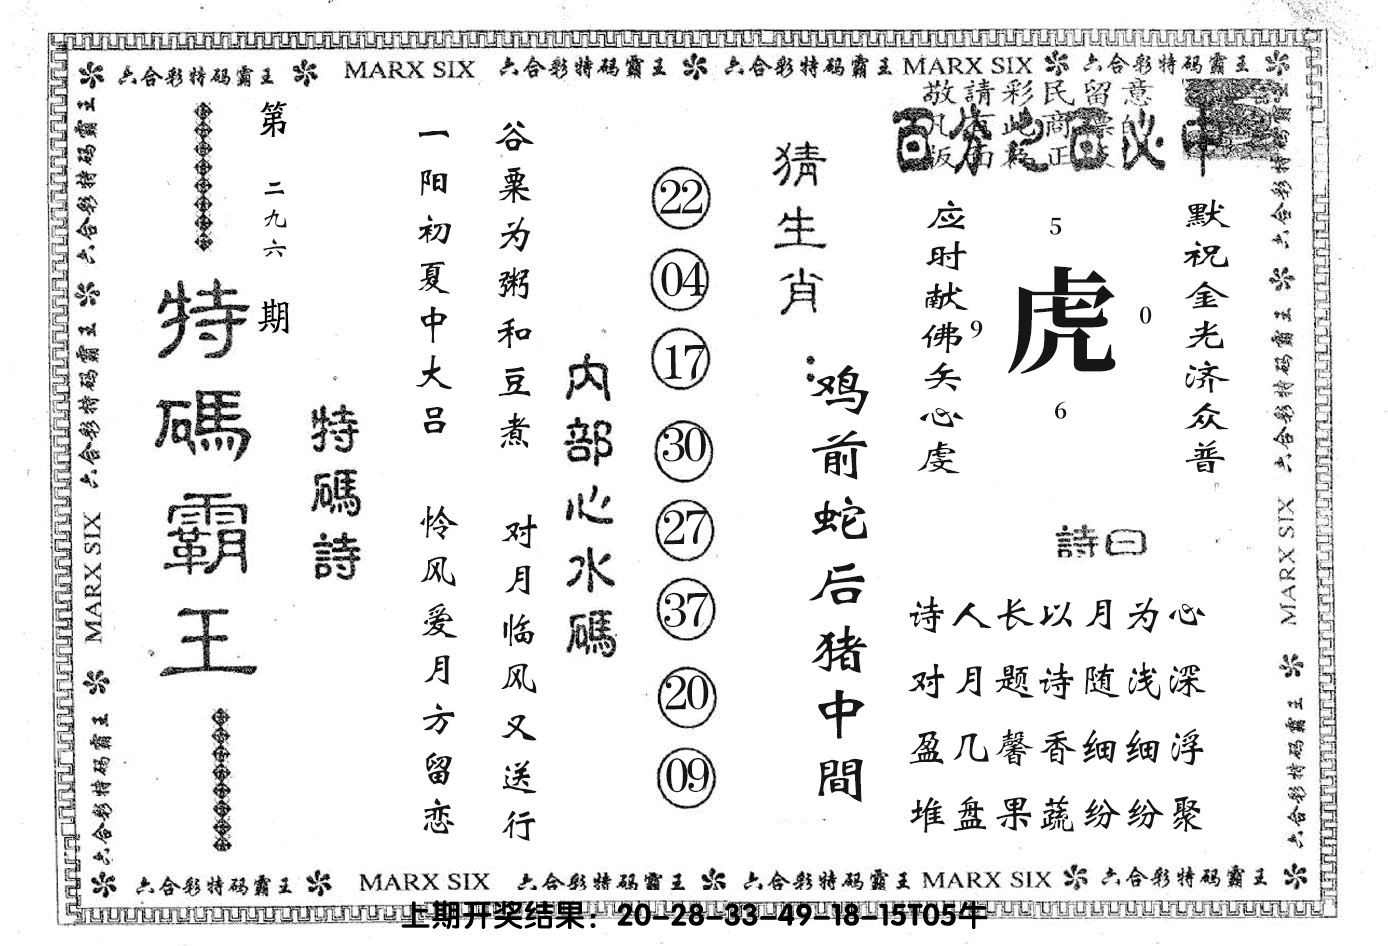 六合彩特码霸王 MARX SIX 六合彩特码霸王 六合彩特码霸王 MARX SIX 六合彩特码霸王
敬請彩民留意
百分之百必中
第二九六期
特碼霸王
特碼詩
一阳初夏中大吕 怜风爱月方留恋
谷粟为粥和豆煮 对月临风又送行
内部心水碼
22
04
17
30
27
37
20
09
猜生肖：
鸡前蛇后猪中間
应时献佛矢心虔
5
9
虎
0
6
默祝金光济众普
詩曰
诗人长以月为心
对月题诗随浅深
盈几馨香细细浮
堆盘果蔬纷纷聚
六合彩特码霸王 MARX SIX 六合彩特码霸王
六合彩特码霸王 六合彩特码霸王 MARX SIX 六合彩特码霸王
六合彩特码霸王 MARX SIX 六合彩特码霸王 六合彩特码霸王 MARX SIX 六合彩特码霸王
上期开奖结果：20-28-33-49-18-15T05牛